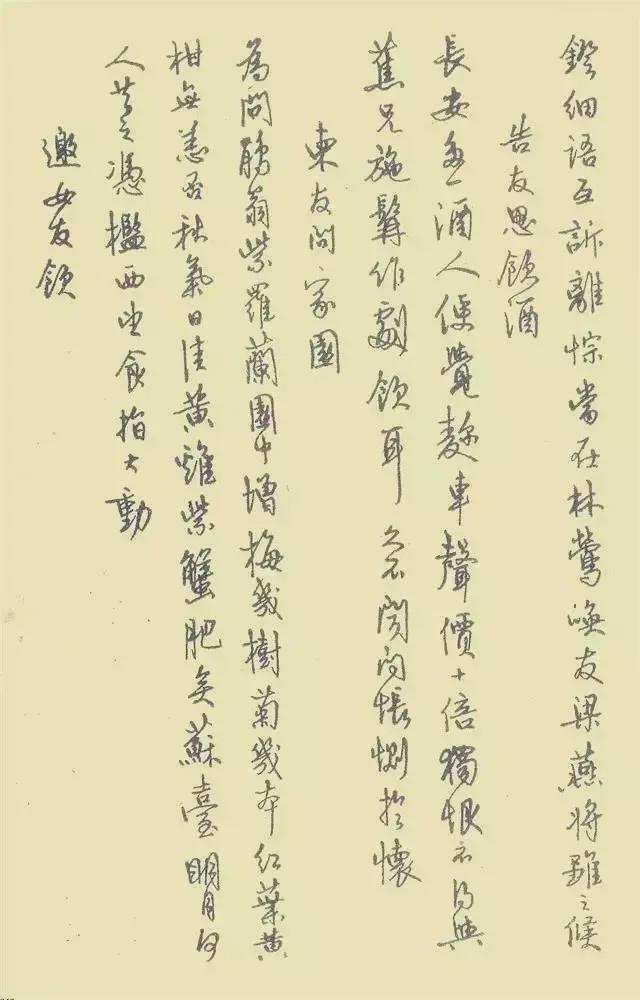 鐙細語互訴離悰當在林鶯喚友梁燕將雛之候
告友思飲酒
長安無酒人便覺麹車聲價十倍獨恨不得與
蕉兄施髯作劇飲耳久不聞問悵惻於懷
柬友問家園
為問勝翁紫羅蘭園中增梅幾樹菊幾本紅葉黃
柑無恙否秋氣日佳黃雞紫蟹肥矣蘇臺明月何
人共之憑檻西望食指大動
邀女友飲